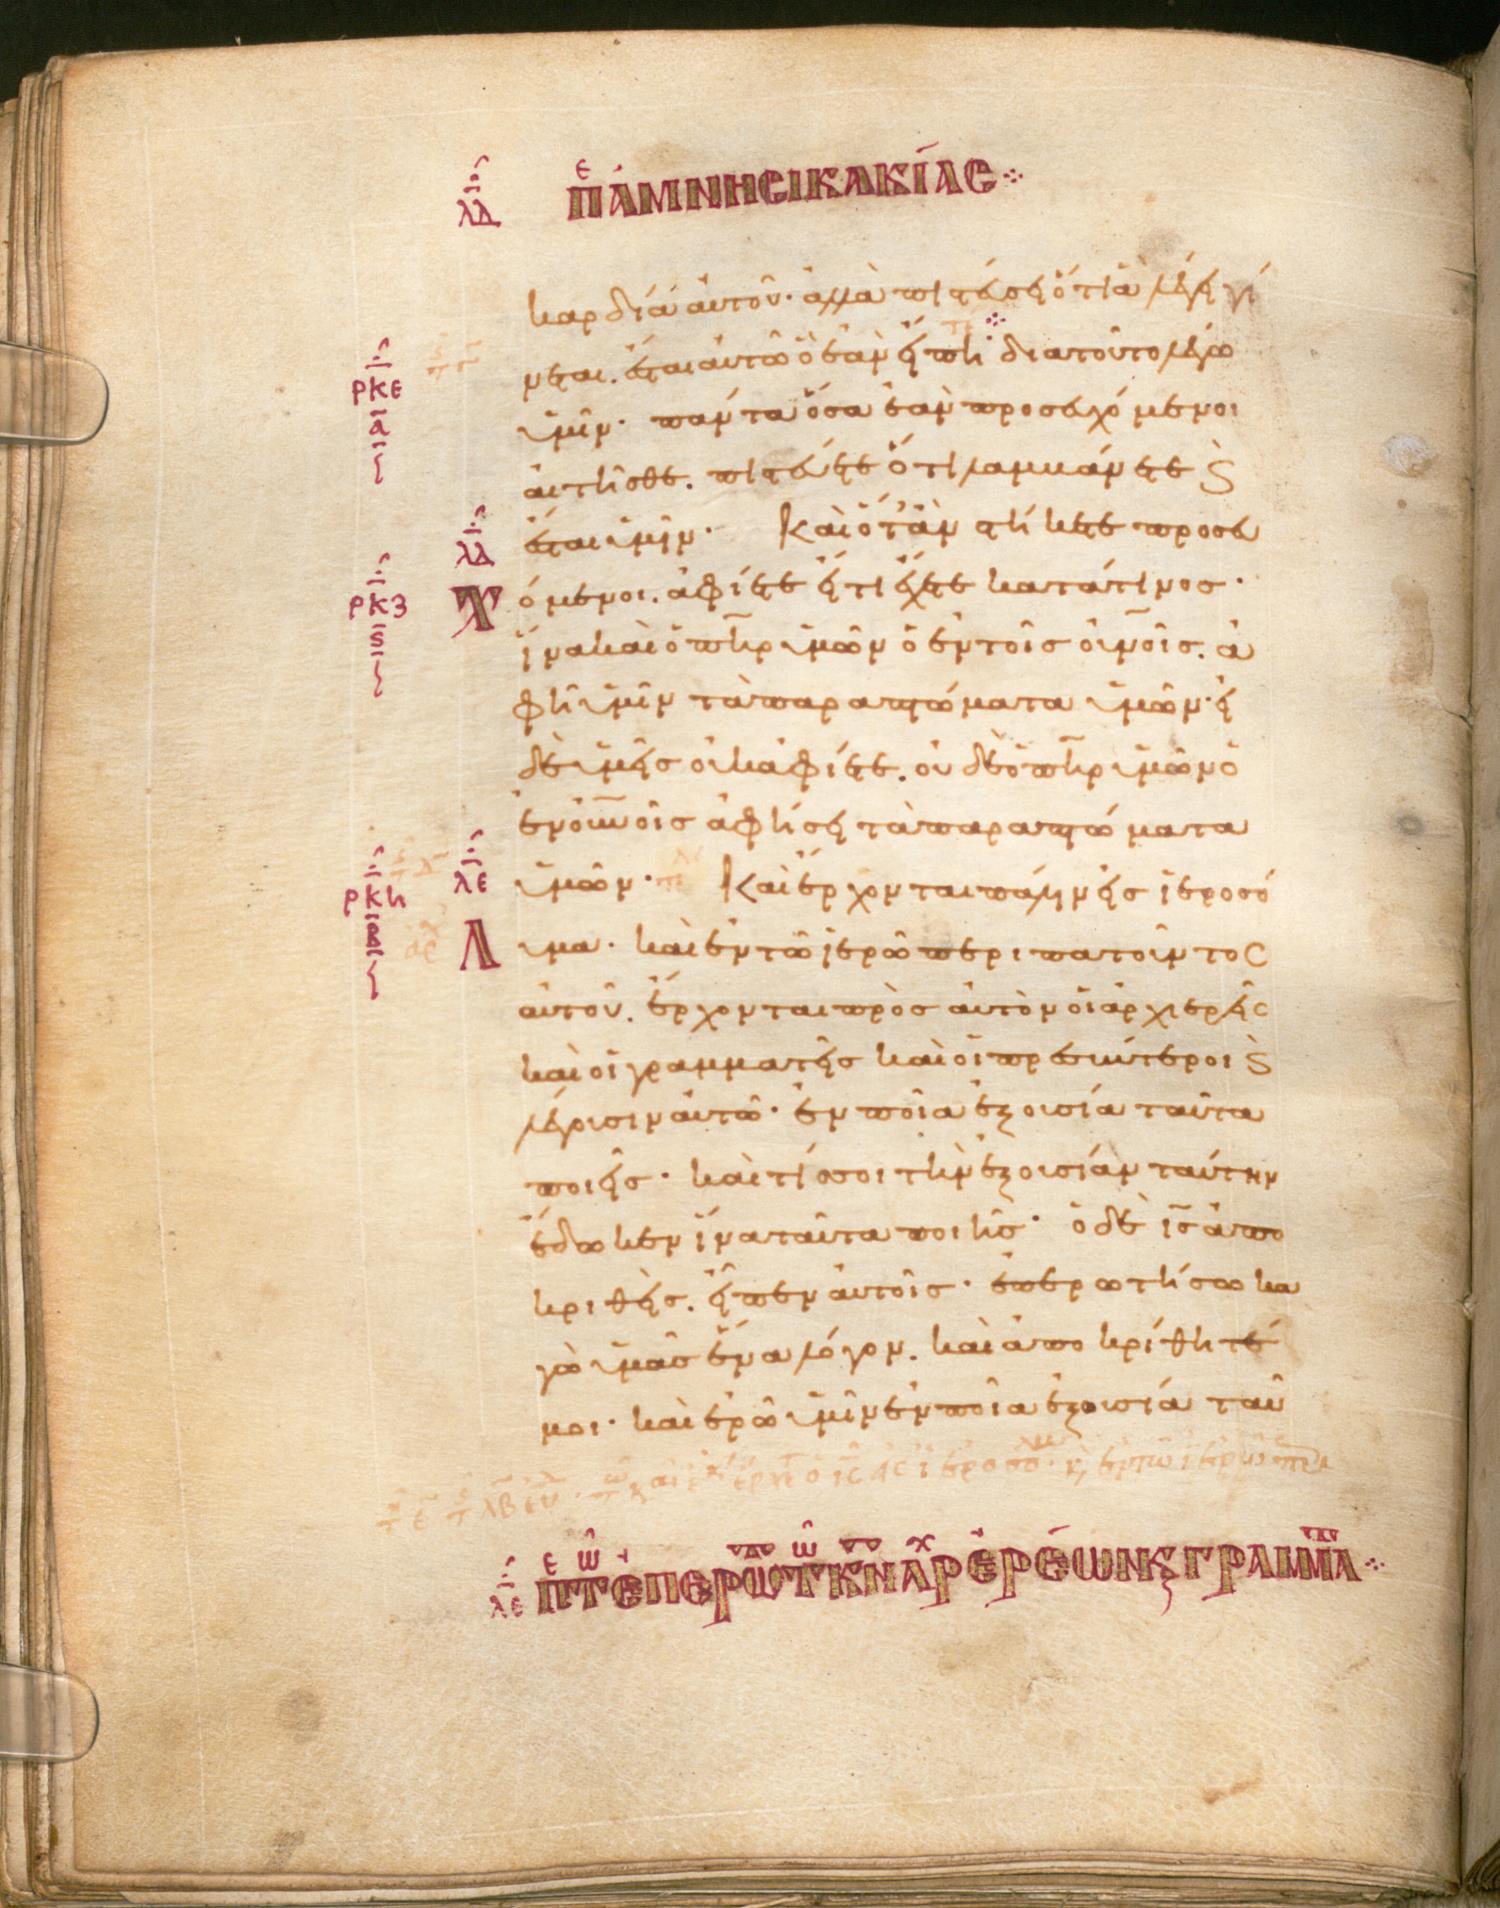 λδ πε ἀμνησικακίας
καρδία αὐτοῦ· ἀλλὰ πιστεύσει ὅτι ἃ λέγει γί
νεται. ἔσται αὐτῶ ὃ ἐὰν εἴπη· διατοῦτο λέγω
ὑμῖν· πάντα ὅσα ἐὰν προσευχόμενοι
αἰτῆσθε. πιστεύετε ὅτι λαμβάνετε ϛ
ἔσται ὑμῖν· Καὶ ὅταν στήκετε προσευ
χόμενοι. ἀφίετε εἴ τι ἔχετε κατά τινος·
ἵνα καὶ ὁ πηρ ὑμῶν ὁ ἐν τοῖς οὐνοῖς. ἀ
φῆ ὑμῖν τὰ παραπτώματα ὑμῶν· εἰ
δὲ ὑμεῖς οὐκ ἀφίετε. οὐδὲ ὁ πηρ ὑμῶν ὁ
ἐν οὐνοῖς ἀφήσει τὰ παραπτώματα
ὑμῶν· Καὶ ἔρχονται πάλιν εἰς ἱεροσό
λυμα· καὶ ἐν τῶ ἱερῶ περιπατοῦντος
αὐτοῦ. ἔρχονται πρὸς αὐτὸν οἱ ἀρχιερεῖς
καὶ οἱ γραμματεῖς καὶ οἱ πρεσβύτεροι ϛ
λέγουσιν αὐτῶ· ἐν ποία ἐξουσία ταῦτα
ποιεῖς· καὶ τίς σοι τὴν ἐξουσίαν ταύτην
ἔδωκεν ἵνα ταῦτα ποιῆς· ὁ δὲ ις ἀπο
κριθεὶς. εἶπεν αὐτοῖς· ἐπερωτήσω κα
γὼ ὑμᾶς ἕνα λόγον. καὶ ἀποκρίθητέ
μοι· καὶ ἐρῶ ὑμῖν ἐν ποία ἐξουσία ταῦ
λε πε τῶ ἐπερωτ κν ἀρχερέων ϗ γραμμα
ρκε
α
λδ
ρκζ
ϛ
λε
ρκη
β